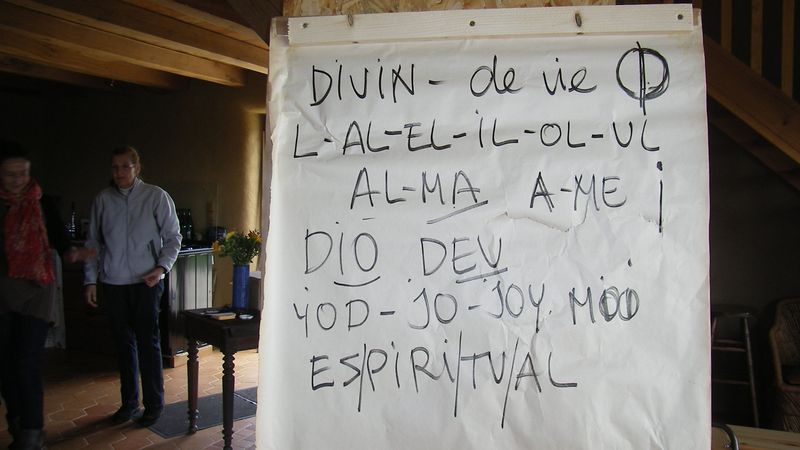 DIVIN - de vie Φ
L-AL-EL-IL-OL-UL
AL-MA A-ME
DIO DEV
YOD-JO-JOY. MOO
ES/PIRI/TU/AL